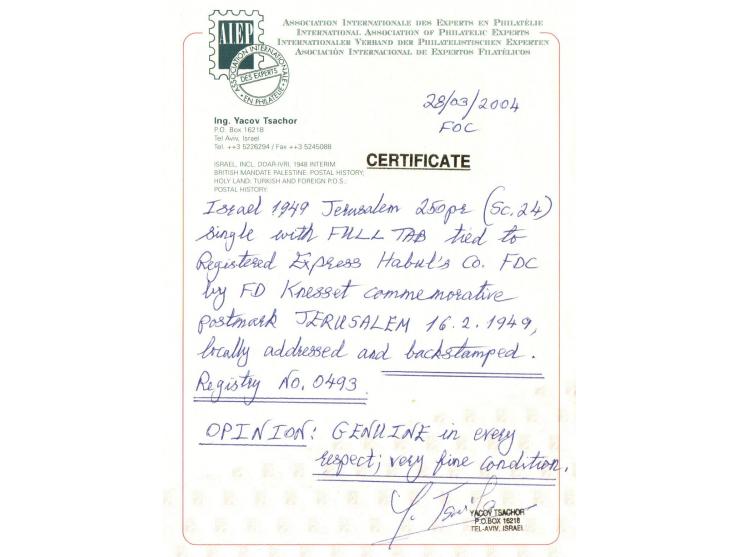 AIEP
ASSOCIATION INTERNATIONALE
DES EXPERTS
EN PHILATÉLIE
ASSOCIATION INTERNATIONALE DES EXPERTS EN PHILATÉLIE
INTERNATIONAL ASSOCIATION OF PHILATELIC EXPERTS
INTERNATIONALER VERBAND DER PHILATELISTISCHEN EXPERTEN
ASOCIACIÓN INTERNACIONAL DE EXPERTOS FILATÉLICOS
28/03/2004
FOC
Ing. Yacov Tsachor
P.O. Box 16218
Tel Aviv, Israel
Tel. ++3 5226294 / Fax ++3 5245088
CERTIFICATE
ISRAEL, INCL. DOAR-IVRI, 1948 INTERIM
BRITISH MANDATE PALESTINE: POSTAL HISTORY;
HOLY LAND: TURKISH AND FOREIGN P.O.S.;
POSTAL HISTORY
Israel 1949 Jerusalem 250pr (Sc.24)
single with FULL TAB tied to
Registered Express Habul's Co. FDC
by FD Knesset commemorative
postmark JERUSALEM 16.2.1949,
locally addressed and backstamped.
Registry No. 0493
OPINION: GENUINE in every
respect; very fine condition.
YACOV TSACHOR
P.O.BOX 16218
TEL-AVIV, ISRAEL